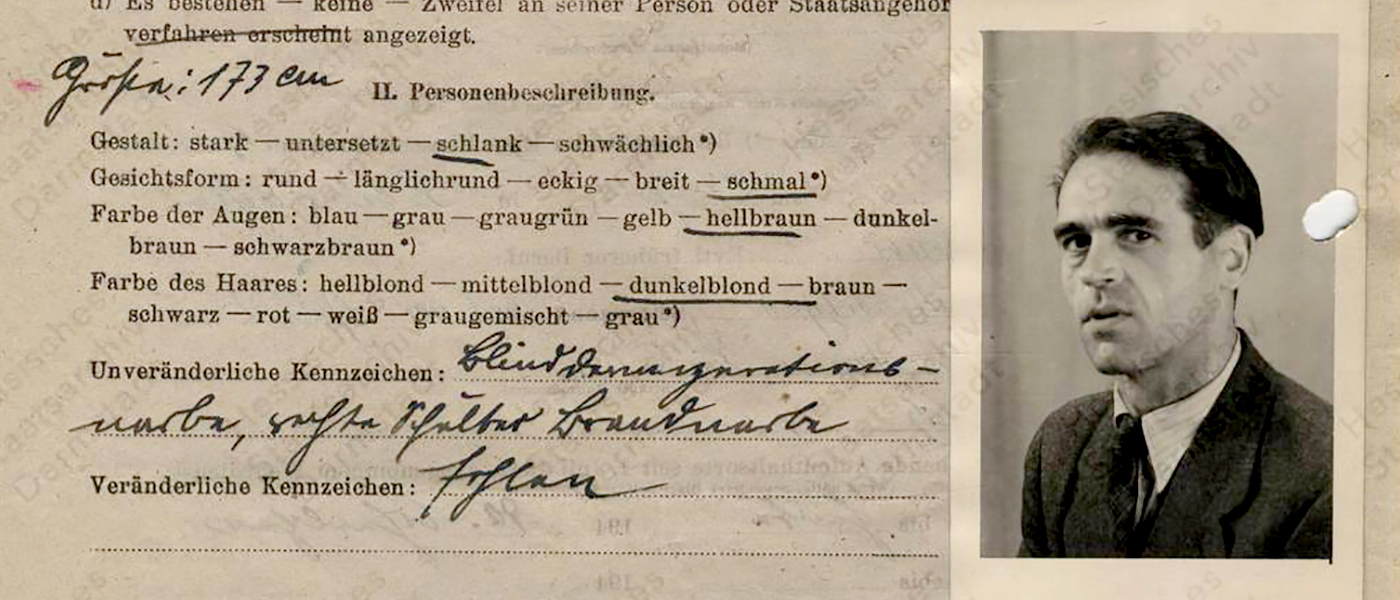 d) Es bestehen — keine — Zweifel an seiner Person oder Staatsangehör
verfahren erscheint angezeigt.
Größe: 173 cm
II. Personenbeschreibung.
Gestalt: stark — untersetzt — schlank — schwächlich*)
Gesichtsform: rund — länglichrund — eckig — breit — schmal*)
Farbe der Augen: blau — grau — graugrün — gelb — hellbraun — dunkel-
braun — schwarzbraun*)
Farbe des Haares: hellblond — mittelblond — dunkelblond — braun —
schwarz — rot — weiß — graugemischt — grau*)
Unveränderliche Kennzeichen:
narbe, rechte Schulter Brandnarbe
Veränderliche Kennzeichen: fehlen
Hessisches
Staatsarchiv
Darmstadt